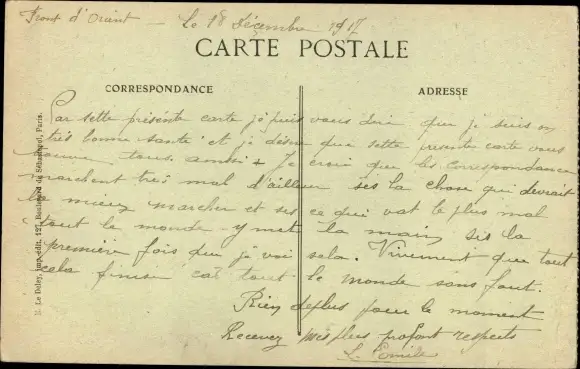 Front d'Orient — Le 18 Décembre 1917
CARTE POSTALE
CORRESPONDANCE
ADRESSE
Par sette présente carte je puis vous dire que je suis en
très bonne santé et je désire que sette presente carte vous
trouve tous ainsi + Je croie que les correspondance
marchent très mal d'ailleur ses la chose qui devrait
le mieux marcher et ses ce qui vat le plus mal
tout le monde y met la main sis la
première fois que je voi sela. Vivement que tout
cela finisse car tout le monde sans fout.
Rien deplus pour le moment
Recevez mes plus profont respects
L. Emile
E. Le Deley, imp.-édit. 127, Boulevard de Sébastopol, Paris.